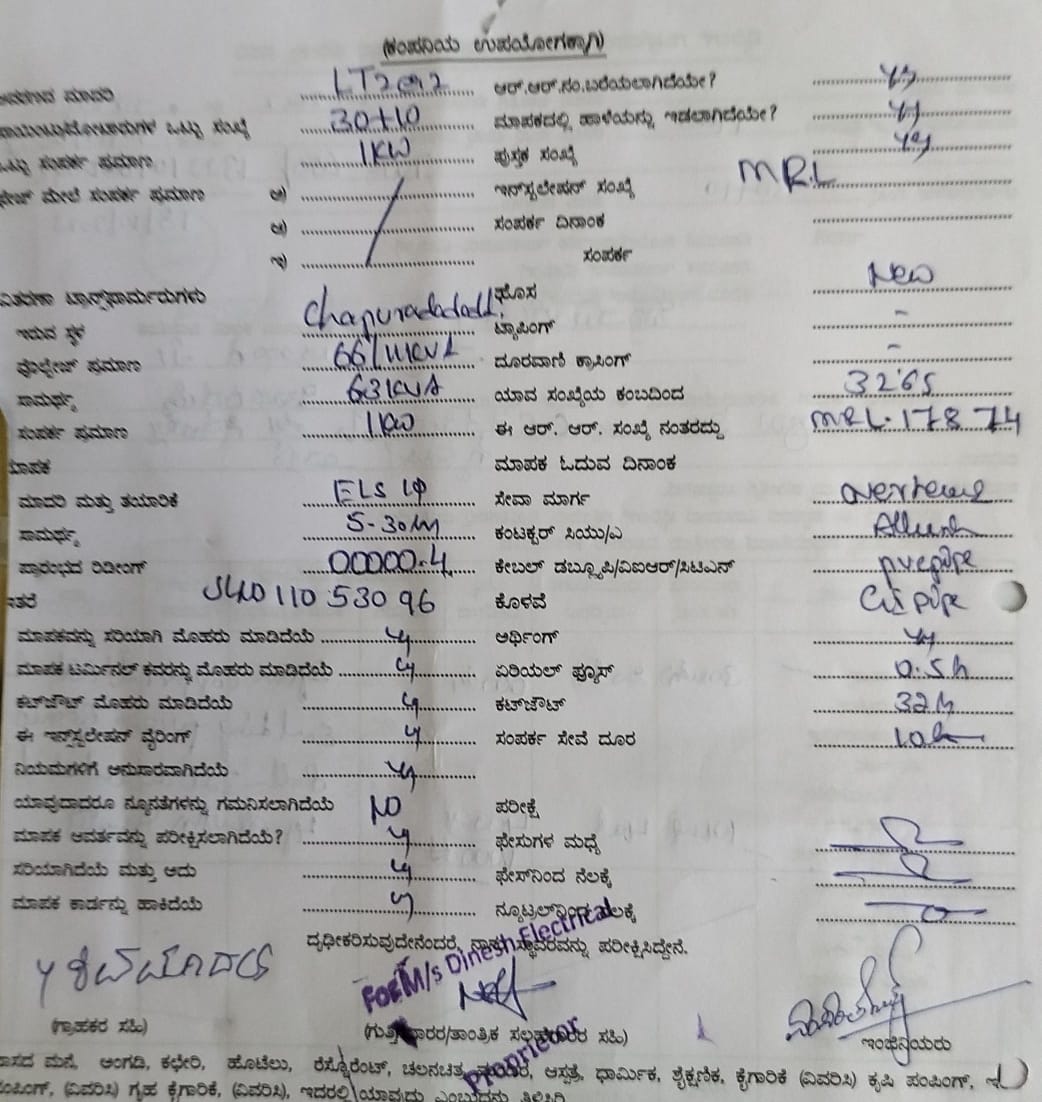 (ಕಂಪನಿಯ ಉಪಯೋಗಕ್ಕಾಗಿ)
ಮಾದರಿ LT2 ಆರ್.ಆರ್.ಸಂ.ಬರೆಯಲಾಗಿದೆಯೇ? ys
ಒಟ್ಟು ಸಂಖ್ಯೆ 30+10 ಮಾಪಕದಲ್ಲಿ ಹಾಳೆಯನ್ನು ಇಡಲಾಗಿದೆಯೇ? ys
ಒಟ್ಟು ಸಂಪರ್ಕ ಪ್ರಮಾಣ 1KW ಪುಸ್ತಕ ಸಂಖ್ಯೆ yes
ಮೇಲೆ ಸಂಪರ್ಕ ಪ್ರಮಾಣ ಅ) ಇನ್‌ಸ್ಟಲೇಷನ್ ಸಂಖ್ಯೆ MRL
ಆ) ಸಂಪರ್ಕ ದಿನಾಂಕ
ಇ) ಸಂಪರ್ಕ
ವಿತರಣಾ ಟ್ರಾನ್ಸ್‌ಫಾರ್ಮರುಗಳು ಹೊಸ New
ಇರುವ ಸ್ಥಳ ಟ್ಯಾಪಿಂಗ್ -
ವೋಲ್ಟೇಜ್ ಪ್ರಮಾಣ ದೂರವಾಣಿ ಕ್ರಾಸಿಂಗ್ -
ಸಾಮರ್ಥ್ಯ 63KVA ಯಾವ ಸಂಖ್ಯೆಯ ಕಂಬದಿಂದ 3265
ಸಂಪರ್ಕ ಪ್ರಮಾಣ 1KW ಈ ಆರ್. ಆರ್. ಸಂಖ್ಯೆ ನಂತರದ್ದು MRL-17874
ಮಾಪಕ ಮಾಪಕ ಓದುವ ದಿನಾಂಕ
ಮಾದರಿ ಮತ್ತು ತಯಾರಿಕೆ ELS 1Φ ಸೇವಾ ಮಾರ್ಗ
ಸಾಮರ್ಥ್ಯ 5-30A ಕಂಟಕ್ಟರ್ ಸಿಯು/ಎ
ಪ್ರಾರಂಭದ ರಿಡೀಂಗ್ 00000.4 ಕೇಬಲ್ ಡಬ್ಲ್ಯೂಪಿ/ವಿಐಆರ್/ಸಿಟಿಎನ್ pvcpipe
ಇತರೆ 11053096 ಕೊಳವೆ GI pipe
ಮಾಪಕವನ್ನು ಸರಿಯಾಗಿ ಮೊಹರು ಮಾಡಿದೆಯೆ y ಅರ್ಥಿಂಗ್ y
ಮಾಪಕ ಟರ್ಮಿನಲ್ ಕವರನ್ನು ಮೊಹರು ಮಾಡಿದೆಯೆ y ಏರಿಯಲ್ ಫ್ಯೂಸ್
ಕಟ್‌ಔಟ್ ಮೊಹರು ಮಾಡಿದೆಯೆ y ಕಟ್‌ಔಟ್ 32A
ಈ ಇನ್‌ಸ್ಟಲೇಷನ್ ವೈರಿಂಗ್ y ಸಂಪರ್ಕ ಸೇವೆ ದೂರ
ನಿಯಮಗಳಿಗೆ ಅನುಸಾರವಾಗಿದೆಯೆ y
ಯಾವುದಾದರೂ ನ್ಯೂನತೆಗಳನ್ನು ಗಮನಿಸಲಾಗಿದೆಯೆ NO ಪರೀಕ್ಷೆ
ಮಾಪಕ ಆವರ್ತವನ್ನು ಪರೀಕ್ಷಿಸಲಾಗಿದೆಯೆ? y ಫೇಸುಗಳ ಮಧ್ಯೆ
ಸರಿಯಾಗಿದೆಯೆ ಮತ್ತು ಅದು y ಫೇಸ್‌ನಿಂದ ನೆಲಕ್ಕೆ
ಮಾಪಕ ಕಾರ್ಡನ್ನು ಹಾಕಿದೆಯೆ y ನ್ಯೂಟ್ರಲ್‌ನಿಂದ ನೆಲಕ್ಕೆ
ದೃಢೀಕರಿಸುವುದೇನೆಂದರೆ, ನಾನು ಸ್ಥಾವರವನ್ನು ಪರೀಕ್ಷಿಸಿದ್ದೇನೆ.
For M/s Dinesh Electrical
Proprietor
(ಗ್ರಾಹಕರ ಸಹಿ) (ಗುತ್ತಿಗೆದಾರರ/ತಾಂತ್ರಿಕ ಸಲಹೆಗಾರರ ಸಹಿ) ಇಂಜಿನಿಯರು
ವಾಸದ ಮನೆ, ಅಂಗಡಿ, ಕಛೇರಿ, ಹೊಟೆಲು, ರೆಸ್ಟೊರೆಂಟ್, ಚಲನಚಿತ್ರ ಮಂದಿರ, ಆಸ್ಪತ್ರೆ, ಧಾರ್ಮಿಕ, ಶೈಕ್ಷಣಿಕ, ಕೈಗಾರಿಕೆ (ವಿವರಿಸಿ) ಕೃಷಿ ಪಂಪಿಂಗ್,
ಪಂಪಿಂಗ್, (ವಿವರಿಸಿ) ಗೃಹ ಕೈಗಾರಿಕೆ, (ವಿವರಿಸಿ), ಇದರಲ್ಲಿ ಯಾವುದು ಎಂಬುದನ್ನು ತಿಳಿಸಿರಿ